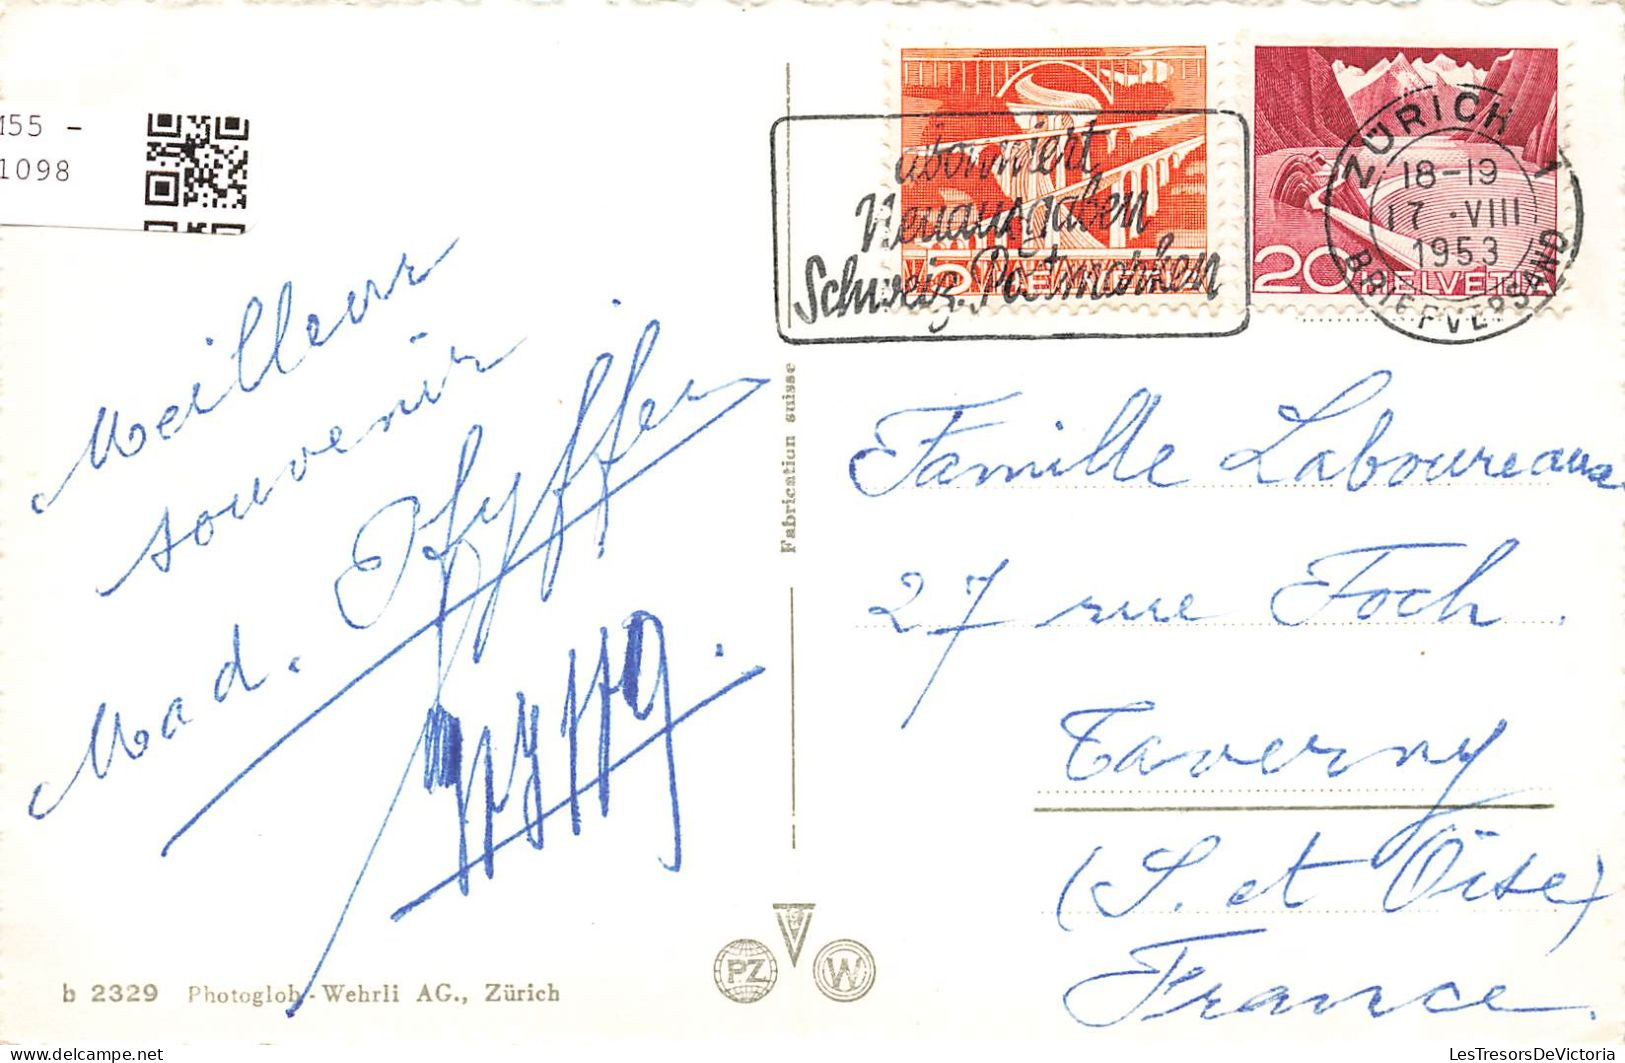 155 -
1098
abonniert
Neuausgaben
Schweiz. Postmarken
5 HELVETIA
20 HELVETIA
ZÜRICH 1
18-19
17.VIII
1953
BRIEFVERSAND
Meilleur
souvenir
Mad. Pfyffer
Fabrication suisse
Famille Laboureaux
27 rue Foch.
Taverny
(S. et Oise)
France.
PZ
W
b 2329 Photoglob-Wehrli AG., Zürich
LesTresorsDeVictoria